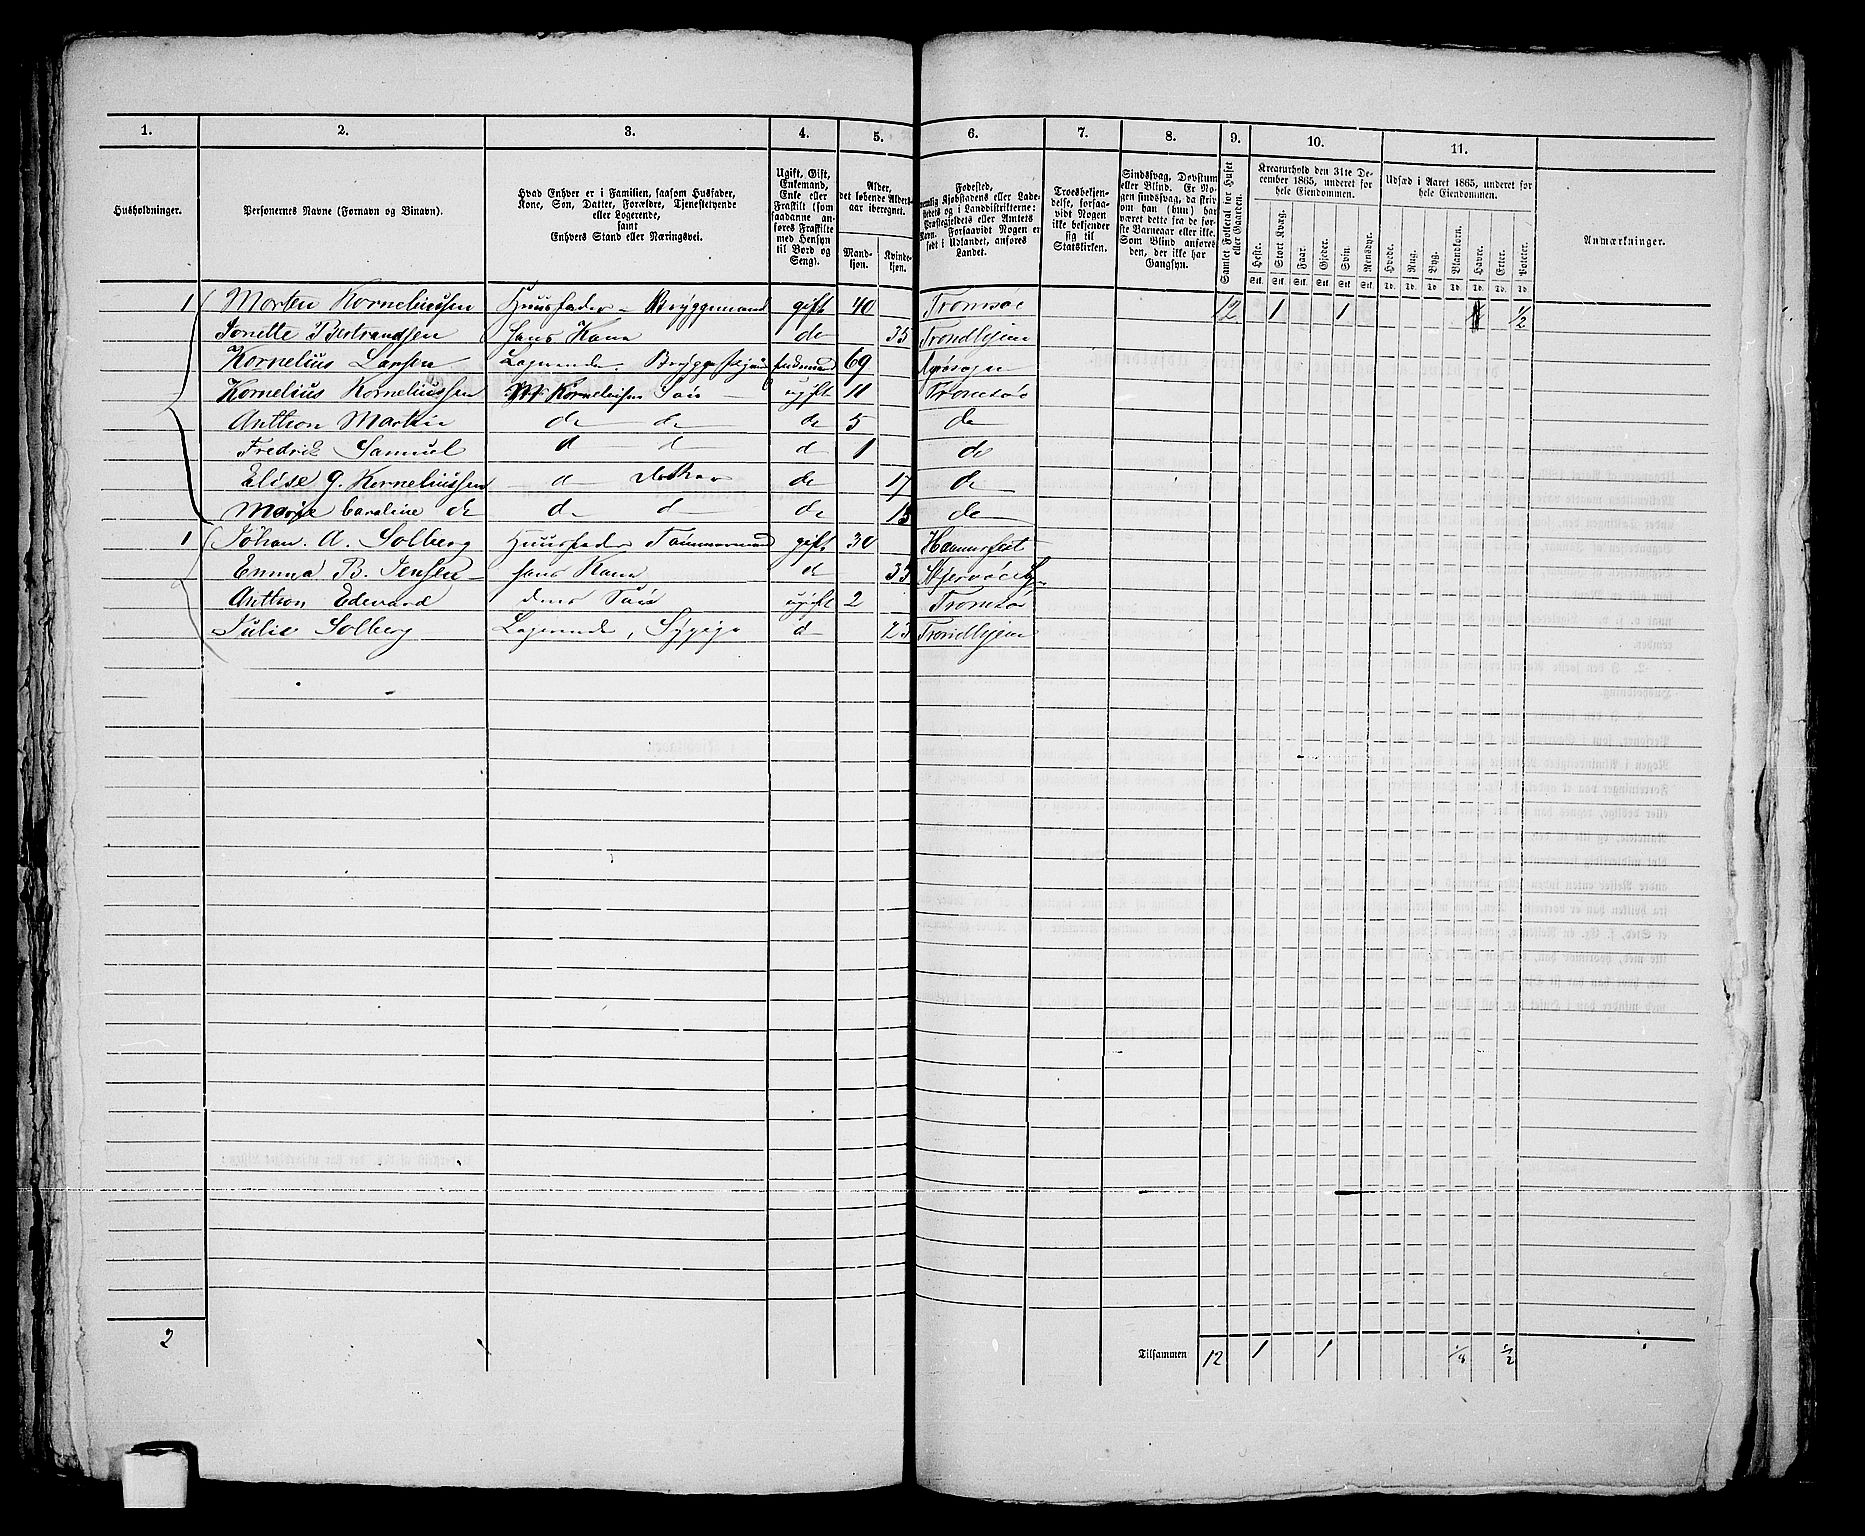 1. 2. 3. 4. 5. 6. 7. 8. 9. 10. 11.
Husholdninger.
Personernes Navne (Fornavn og Binavn).
Hvad Enhver er i Familien, saasom Husfader,
Kone, Søn, Datter, Forældre, Tjenestetyende
eller Logerende,
samt
Enhvers Stand eller Næringsvei.
Ugift, Gift,
Enkemand,
Enke eller
Fraskilt (som
saadanne an-
føres Fraskilte
med Hensyn
til Bord og
Seng).
Alder,
det løbende Alders-
aar iberegnet.
Mand-
kjøn.
Kvinde-
kjøn.
Fødested,
nemlig Kjøbstadens eller Lade-
stedets og i Landdistrikterne:
Præstegjeldets eller Amtets
Navn. Forsaavidt Nogen er
født i Udlandet, anføres
Landet.
Troesbekjen-
delse, forsaa-
vidt Nogen
ikke bekjender
sig til
Statskirken.
Sindssvag, Døvstum
eller Blind. Er No-
gen sindssvag, da skriv
om han (hun) har
været dette fra de før-
ste Barneaar eller ikke.
Som Blind anføres
den, der ikke har
Gangsyn.
Samlet Folketal for Huset
eller Gaarden.
Kreaturhold den 31te De-
cember 1865, underet for
hele Eiendommen.
Heste. Stort Kvæg. Faar. Gjeder. Svin. Rensdyr.
Stk. Stk. Stk. Stk. Stk. Stk.
Udsæd i Aaret 1865, underet for
hele Eiendommen.
Hvede. Rug. Byg. Blandkorn. Havre. Erter. Poteter.
Td. Td. Td. Td. Td. Td. Td.
Anmærkninger.
1 Morten Korneliussen Huusfader – Bryggemand gift 40 Tromsøe 12 1 1 1/2
Jonette Bertrandsen Hans Kone do 35 Trondhjem
Kornelius Larsen Logerende. 69
Kornelius Korneliussen M. Korneliusen Søn – ugift 11 Tromsøe
Anthon Martin do do do 5 do
Fredrik Samuel d d d 1 do
Elise G. Korneliussen d Dotter do 17 do
Marje Caroline do do d do 15 do
1 Johan. A. Solberg Huusfader Tømmermand gift 30 Hammerfest
Emma B. Jensen – hans Kone d 35
Anthon Edevard deres Søn ugift 2 Tromsøe
Julie Solberg Logerende, Sypige d 25 Trondhjem
2
Tilsammen 12 1 1 1/8 1/2